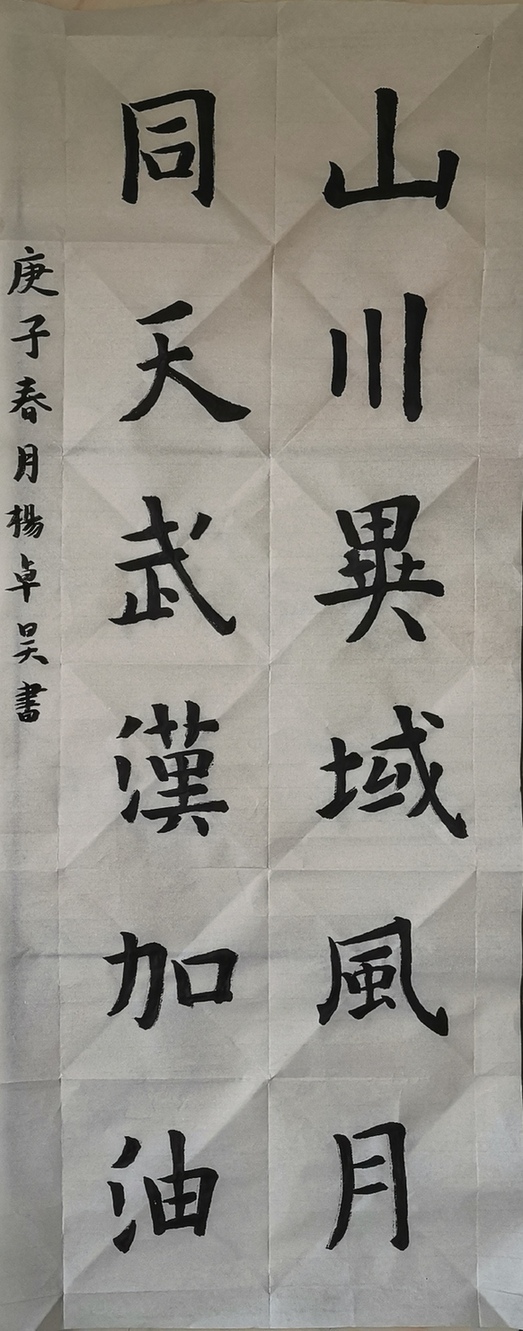 山川異域風月
同天武漢加油
庚子春月楊卓昊書